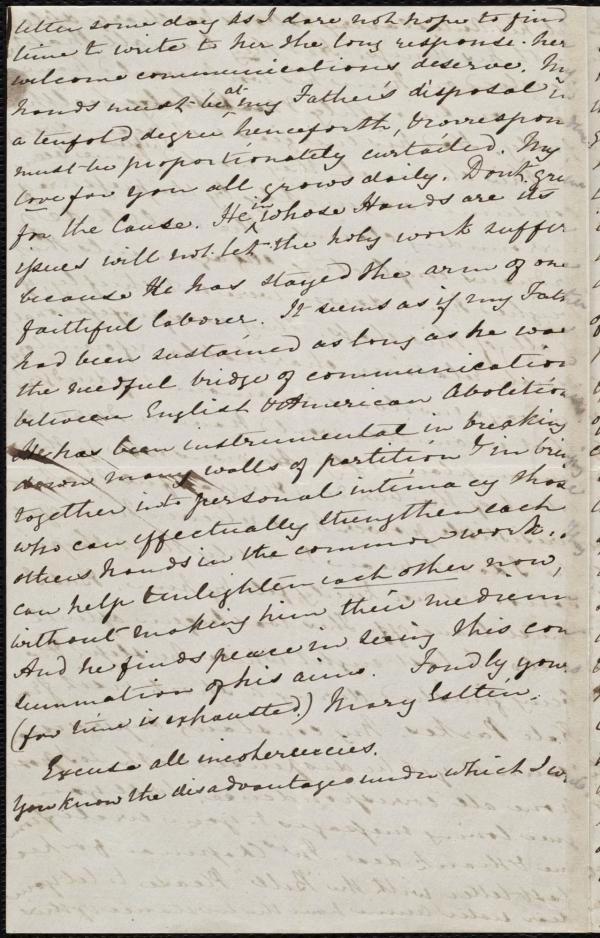 letter some day as I dare not hope to find
time to write to her the long response her
welcome communications deserve. My
hands must be at my Father's disposal in
a tenfold degree henceforth, & correspon
must be proportionately curtailed. My
love for you all grows daily. Don't gri
for the Cause. He in whose Hands are its
issues will not let the holy work suffer
because He has stayed the arm of one
faithful laborer. It seems as if my Fath
had been sustained as long as he was
the needful bridge of communication
between English & American Abolition
He has been instrumental in breaking
down many walls of partition & in brin
together into personal intimacy those
who can effectually strengthen each
others hands in the common work.
can help & enlighten each other now,
without making him their medium
And he finds peace in seeing this con
summation of his aims. Fondly your
(for time is exhausted.) Mary Estlin.
Excuse all incoherencies.
You know the disadvantages under which I w